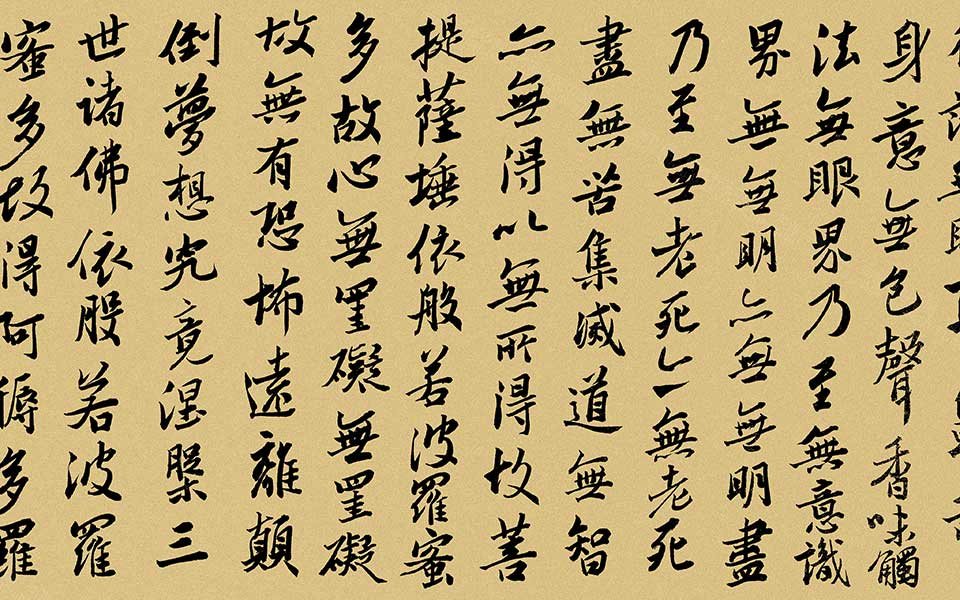 身意無色聲香味觸
法無眼界乃至無意識
界無無明亦無無明盡
乃至無老死亦無老死
盡無苦集滅道無智
亦無得以無所得故菩
提薩埵依般若波羅蜜
多故心無罣礙無罣礙
故無有恐怖遠離顛
倒夢想究竟涅槃三
世諸佛依般若波羅
蜜多故得阿耨多羅